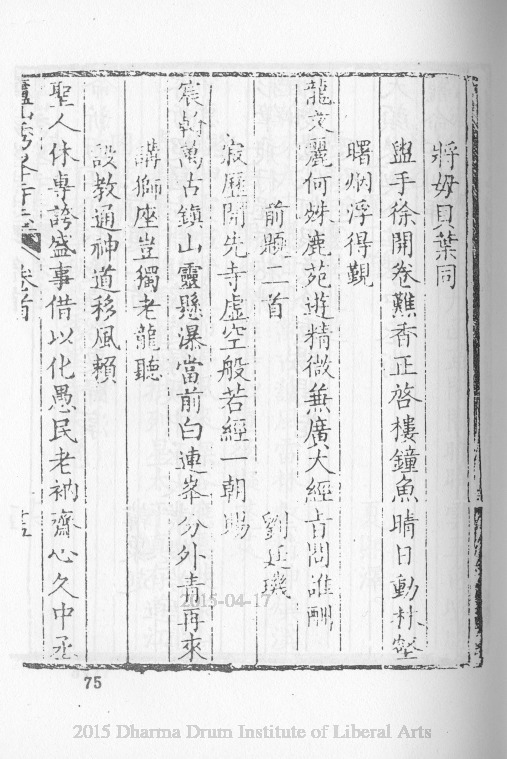 將毋貝葉同
盥手徐開卷爇香正啓樓鐘魚晴日動林壑
曙烟浮得覲
龍文麗何殊鹿苑遊精微兼廣大經旨問誰酬
前題二首 劉廷璣
寂歷開先寺虛空般若經一朝賜
宸翰萬古鎮山靈懸瀑當前白連峯分外青再來
講獅座豈獨老龍聽
設教通神道移風賴
聖人休專誇盛事借以化愚民老衲齋心久中丞
廬山秀峯寺志 卷首
75
2015-04-17
2015 Dharma Drum Institute of Liberal Arts